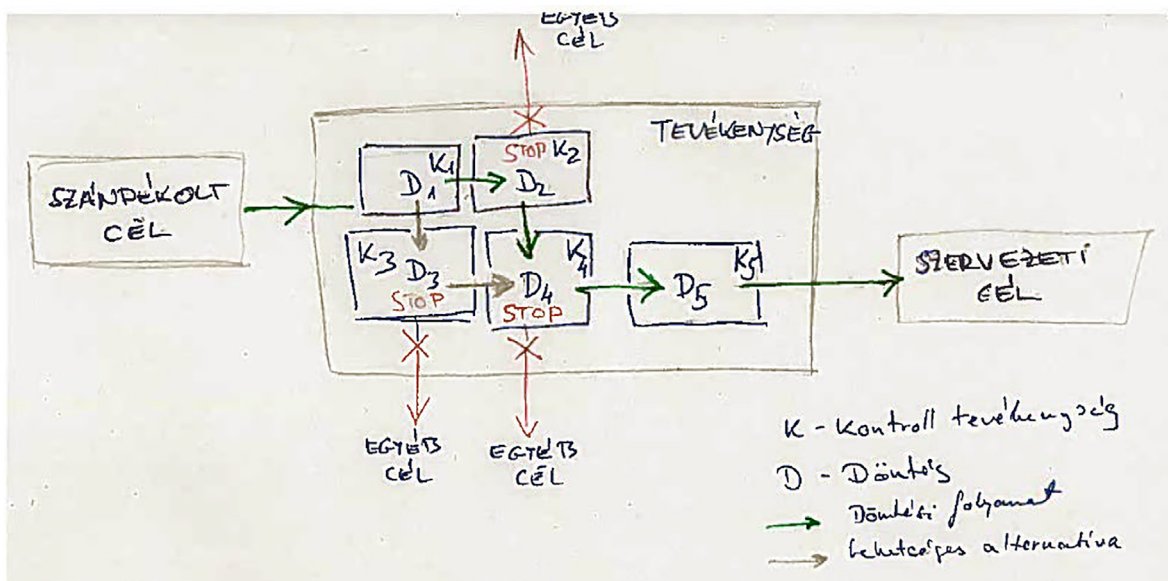 EGYÉB
CÉL
TEVÉKENYSÉG
SZÁNDÉKOLT
CÉL
K1
D1
STOP K2
D2
K3
D3
STOP
K4
D4
STOP
K5
D5
SZERVEZETI
CÉL
EGYÉB
CÉL
EGYÉB
CÉL
K - Kontroll tevékenység
D - Döntés
Döntési folyamat
Lehetséges alternatíva